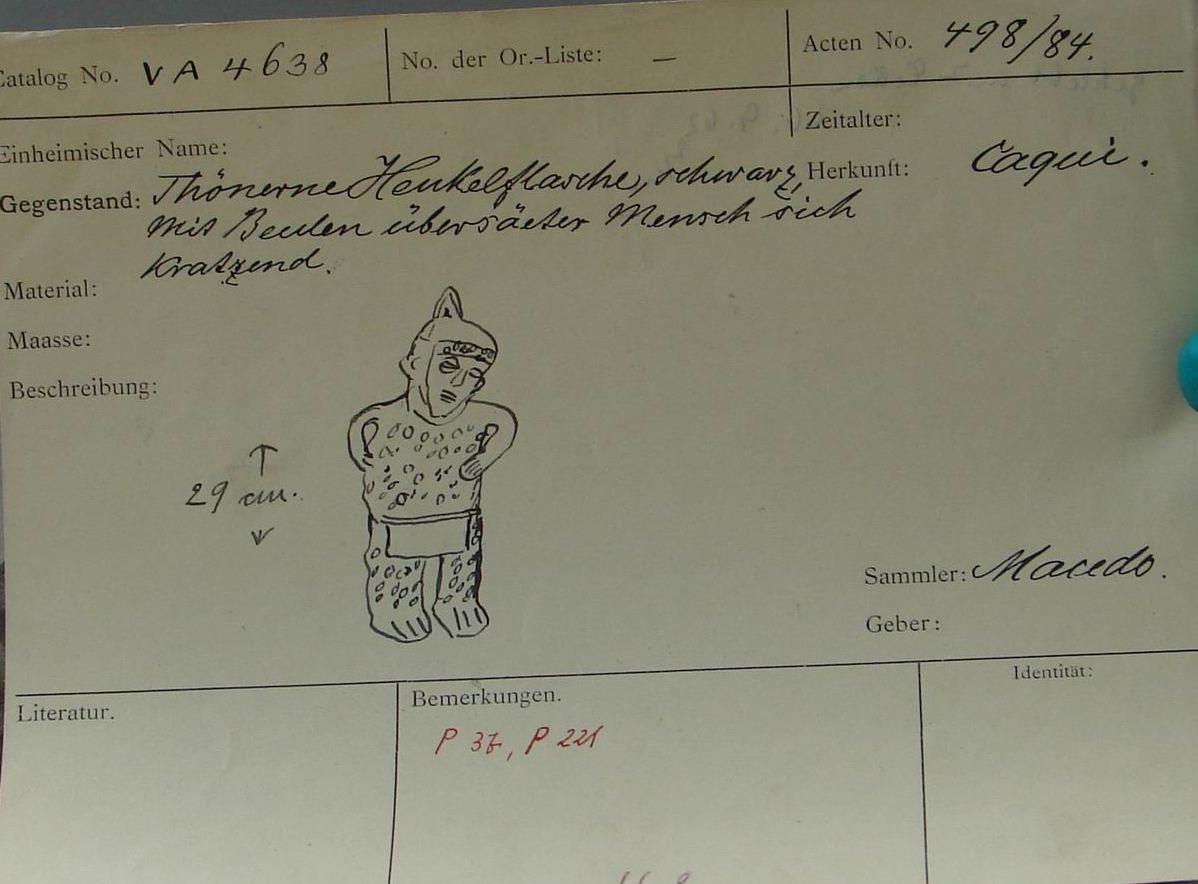 Catalog No. VA 4638
No. der Or.-Liste: —
Acten No. 498/84.
Einheimischer Name:
Zeitalter:
Gegenstand: Thönerne Henkelflasche, schwarz,
mit Beulen übersäeter Mensch sich
kratzend.
Herkunft: Caqui.
Material:
Maasse:
Beschreibung:
29 cm.
Sammler: Macedo.
Geber:
Literatur.
Bemerkungen.
P 221
Identität: